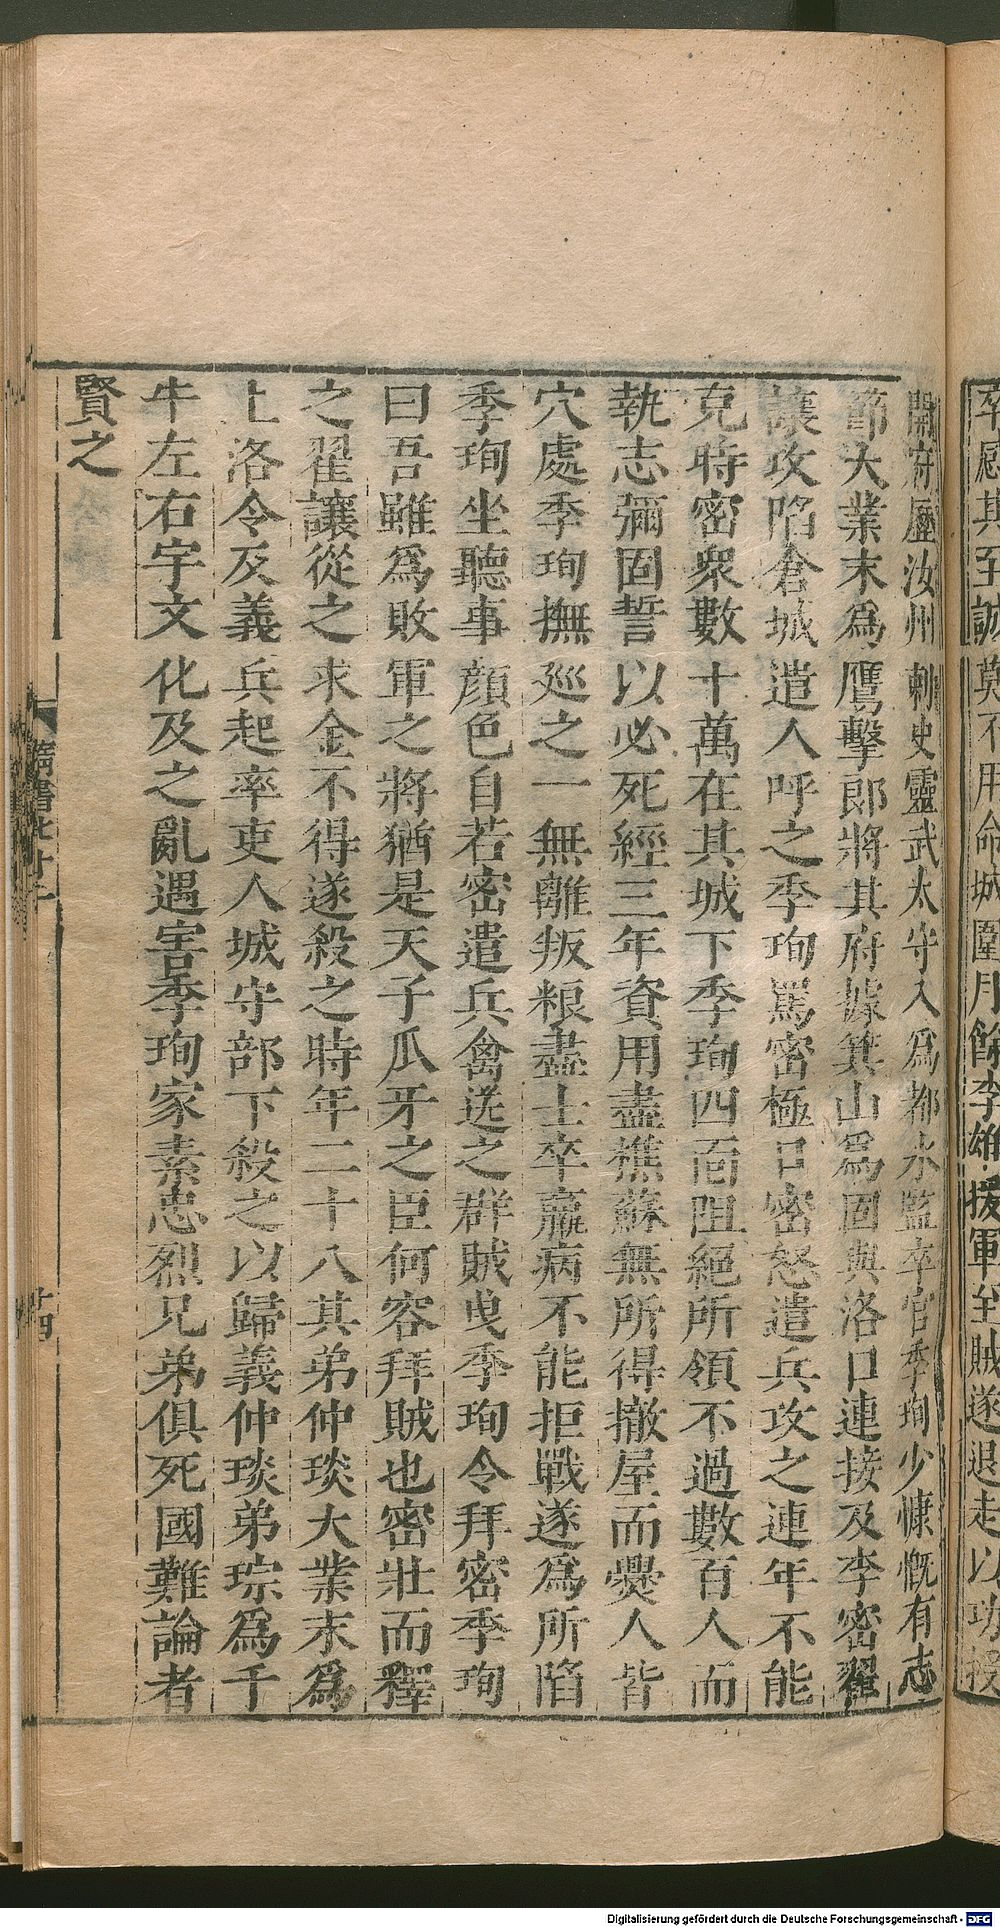 卒感其至誠莫不用命城圍月餘李雄援軍至賊遂退走以功授
開府歷汝州刺史靈武太守入爲都水監卒官季珣少慷慨有志
節大業末爲鷹擊郎將其府據箕山爲固與洛口連接及李密翟
讓攻陷倉城遣人呼之季珣罵密極口密怒遣兵攻之連年不能
克時密衆數十萬在其城下季珣四面阻絕所領不過數百人而
執志彌固誓以必死經三年資用盡樵蘇無所得撤屋而爨人皆
穴處季珣撫廵之一無離叛粮盡士卒羸病不能拒戰遂爲所陷
季珣坐聽事顔色自若密遣兵禽送之群賊曳季珣令拜密季珣
曰吾雖爲敗軍之將猶是天子爪牙之臣何容拜賊也密壯而釋
之翟讓從之求金不得遂殺之時年二十八其弟仲琰大業末爲
上洛令及義兵起率吏人城守部下殺之以歸義仲琰弟琮爲千
牛左右宇文化及之亂遇害季珣家素忠烈兄弟俱死國難論者
賢之
隋書七十一
廿四
Digitalisierung gefördert durch die Deutsche Forschungsgemeinschaft - DFG